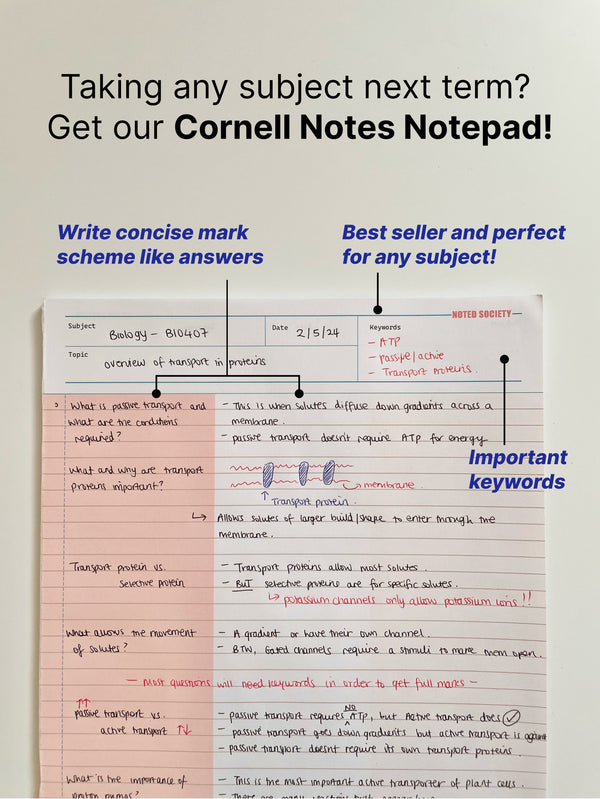 Taking any subject next term?
Get our Cornell Notes Notepad!
Write concise mark
scheme like answers
Best seller and perfect
for any subject!
NOTED SOCIETY
Subject
Biology - BIO407
Date
2/5/24
Keywords
- ATP
- passive/active
- Transport proteins.
Topic
overview of transport in proteins
Important
keywords
What is passive transport and
what are the conditions
required?
- This is when solutes diffuse down gradients across a
membrane.
- passive transport doesn't require ATP for energy
What and why are transport
proteins important?
membrane.
↑ Transport protein.
↳ Allows solutes of larger build/shape to enter through the
membrane.
Transport protein vs.
selective protein
- Transport proteins allow most solutes.
- BUT selective proteins are for specific solutes.
↳ potassium channels only allow potassium ions!!
What allows the movement
of solutes?
- A gradient or have their own channel.
- BTW, Gated channels require a stimuli to make them open.
- Most questions will need keywords in order to get full marks -
↑↑
passive transport vs.
active transport ↑↓
NO
- passive transport requires ^ ATP, but Active transport does ✓
- passive transport goes down gradients but active transport is against
- passive transport doesn't require its own transport proteins.
What is the importance of
proton pumps?
- This is the most important active transporter of plant cells.
- There are many